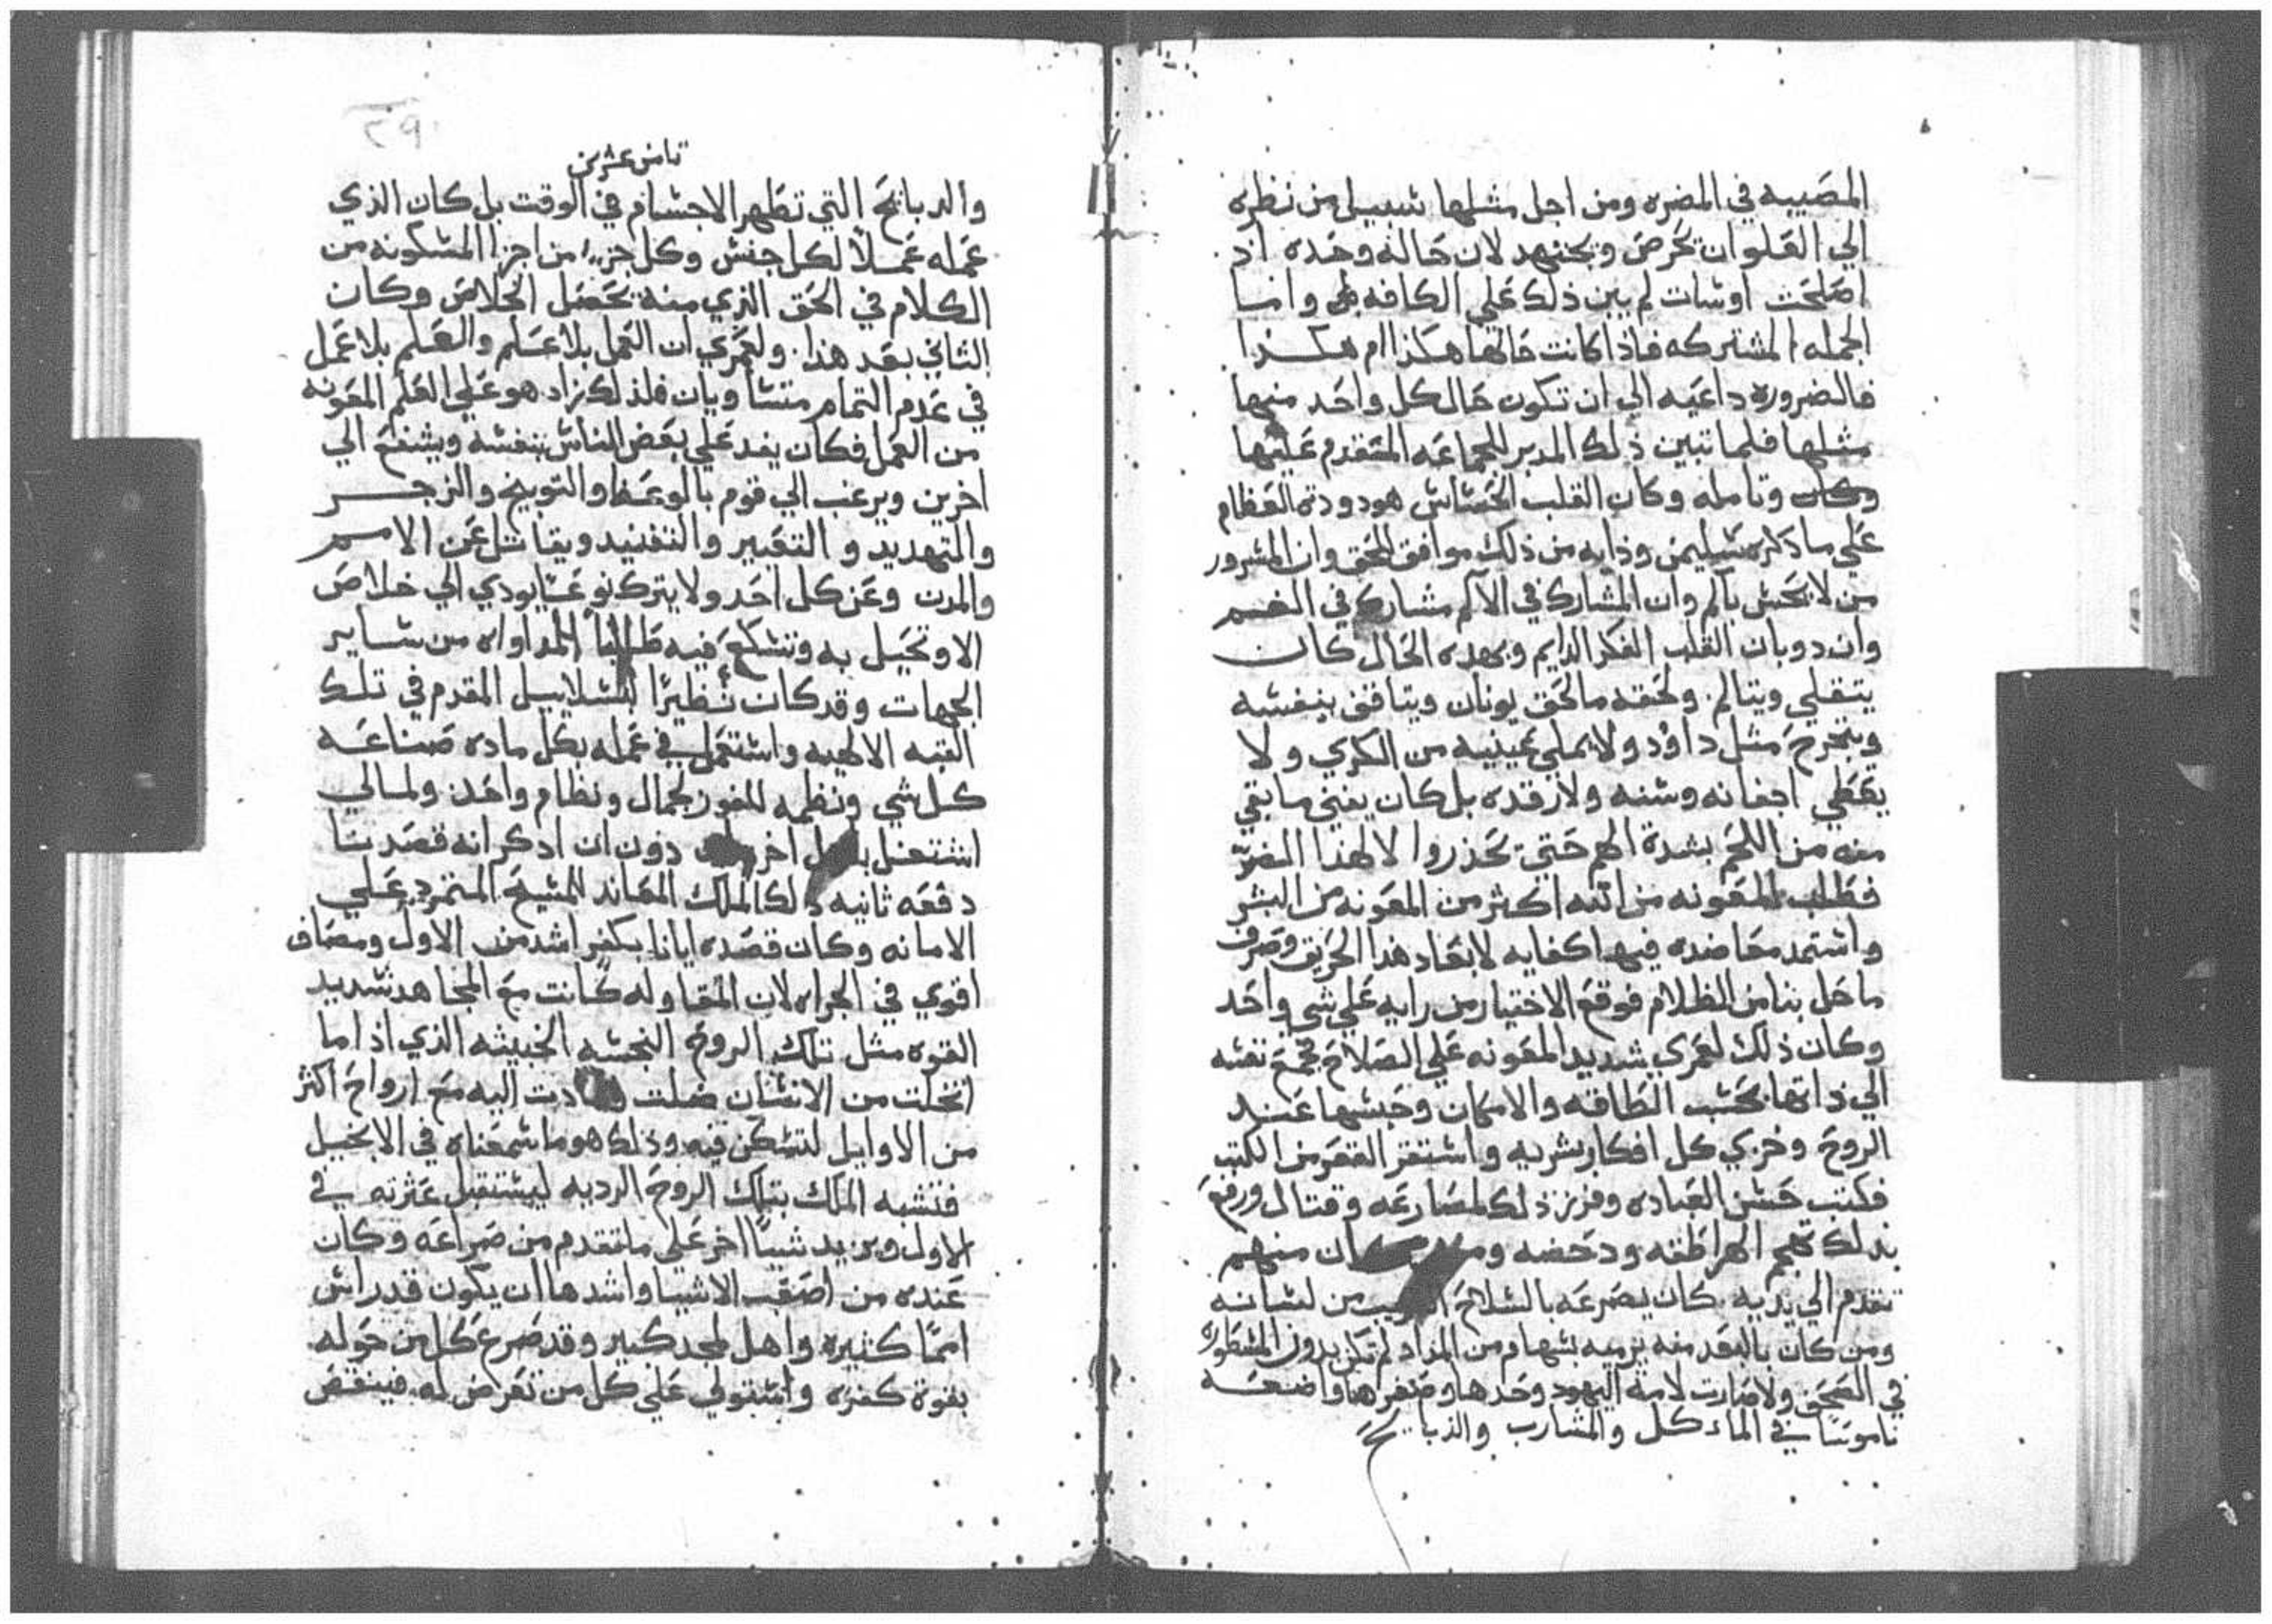 المصيبه في المضره ومن اجل مثلها سبيل من نظره
الي العلو ان يحرص ويجتهد لان حاله وحده اذ
اصلحت اوسات لم يبن ذلك علي الكافه وانما
الجمله المشتركه فاذا كانت حالتها هكذا ام هكذا
فالضروره داعيه الي ان تكون حال كل واحد منها
مثلها فلما تبين ذلك المدبر للجماعه المتقدم عليها
وكان وتامله وكان القلب الحساس هو دودة العظام
علي ما ذكره سليمن وذايه من ذلك موافق للحق وان المسرور
من لا يحس بالم وان المشارك في الالم مشارك في الغم
وان دوبان القلب الفكر الدايم وبهده الحال كان
يتقلي ويتالم ولحقه مالحق يونان ويتافف بنفسه
ويتجرح مثل داوُد ولا يملي عينيه من الكري ولا
يعطي اجفانه وسنه ولا رقده بل كان يفني ما بقي
منه من اللحم بشدة الهم حتي تحذروا لا لهذا الضرّ
فطلب المعونه من الله اكثر من المعونه من البشر
واستمد معاضده فيها كفايه لابعاد هدا الحريق وصرف
ما حل بنا من الظلام فوقع الاختيار من رايه علي شي واحد
وكان ذلك لعمري شديد المعونه علي الصلاح فجمع نفسه
الي ذاتها بحسب الطاقه والامكان وحبسها عند
الروح وخزي كل افكار بشريه واستفز القعر من الكتب
فكتب حسن العباده وفرز ذلك لمصارعه وقتال ورفع
بذلك تهجم الهراطقه ودحضه ان منهم
تقدم الي يديه كان يصرعه بالسلاح من لسانه
ومن كان بالبعد منه يرميه بسهام من المداد لم تكن بدون المسطوره
في الصحف ولا صارت لامة اليهود وحدها وصغرها واضعه
ناموسًا في الماءكل والمشارب والذبايح
٢٩
تامن عشرين
والدبايح التي تطهر الاجسام في الوقت بل كان الذي
عمله عملًا لكل جنس وكل جزء من اجزا المسكونه من
الكلام في الحق الذي منه يحصل الخلاص وكان
الثاني بعد هذا ولعمري ان العمل بلا علم والعلم بلا عمل
في عدم التمام متساويان فلذلك زاد هو علي العلم المعونه
من العمل فكان يفد علي بعض الناس بنفسه ويشفع الي
اخرين ويرغب الي قوم بالوعظ والتوبيخ والزجر
والتهديد والتعيير والتفنيد ويقاتل عن الامم
والمدن وعن كل احد ولا يترك نوعًا يودي الي خلاص
الا وتحيل به وتشكع فيه طالبًا المداواه من ساير
الجهات وقد كان نظيرًا لبسلاييل المقدم في تلك
القبه الالهيه واستعمل في عمله بكل ماده صناعه
كل شي ونظمه للفوز بجمال ونظام واحد ولمالي
اشتغل اخر دون ان ادكر انه قصدنا
دفعه ثانيه ذلك الملك المعاند للمسيح المتمرد علي
الامانه وكان قصده ايانا بكفر اشد من الاول ومصاف
اقوي في الجراه لان المقاوله كانت مع المجاهد شديد
القوه مثل تلك الروح النجسه الخبيثه الذي اذا ما
انحلت من الانسان ضلت دت اليه مع ارواح اكثر
من الاوايل لتسكن فيه وذلك هو ما سمعناه في الانجيل
فتشبه الملك بتلك الروح الرديه ليستقبل عثرته في
الاول ويزيد شيًا اخر علي ما تقدم من صراعه وكان
عنده من اصعب الاشيا واشدها ان يكون قد راس
اممًا كثيره واهل لمجد كبير وقد صرع كل من حوله
بقوة كفره واستولي علي كل من تعرض له فينغض